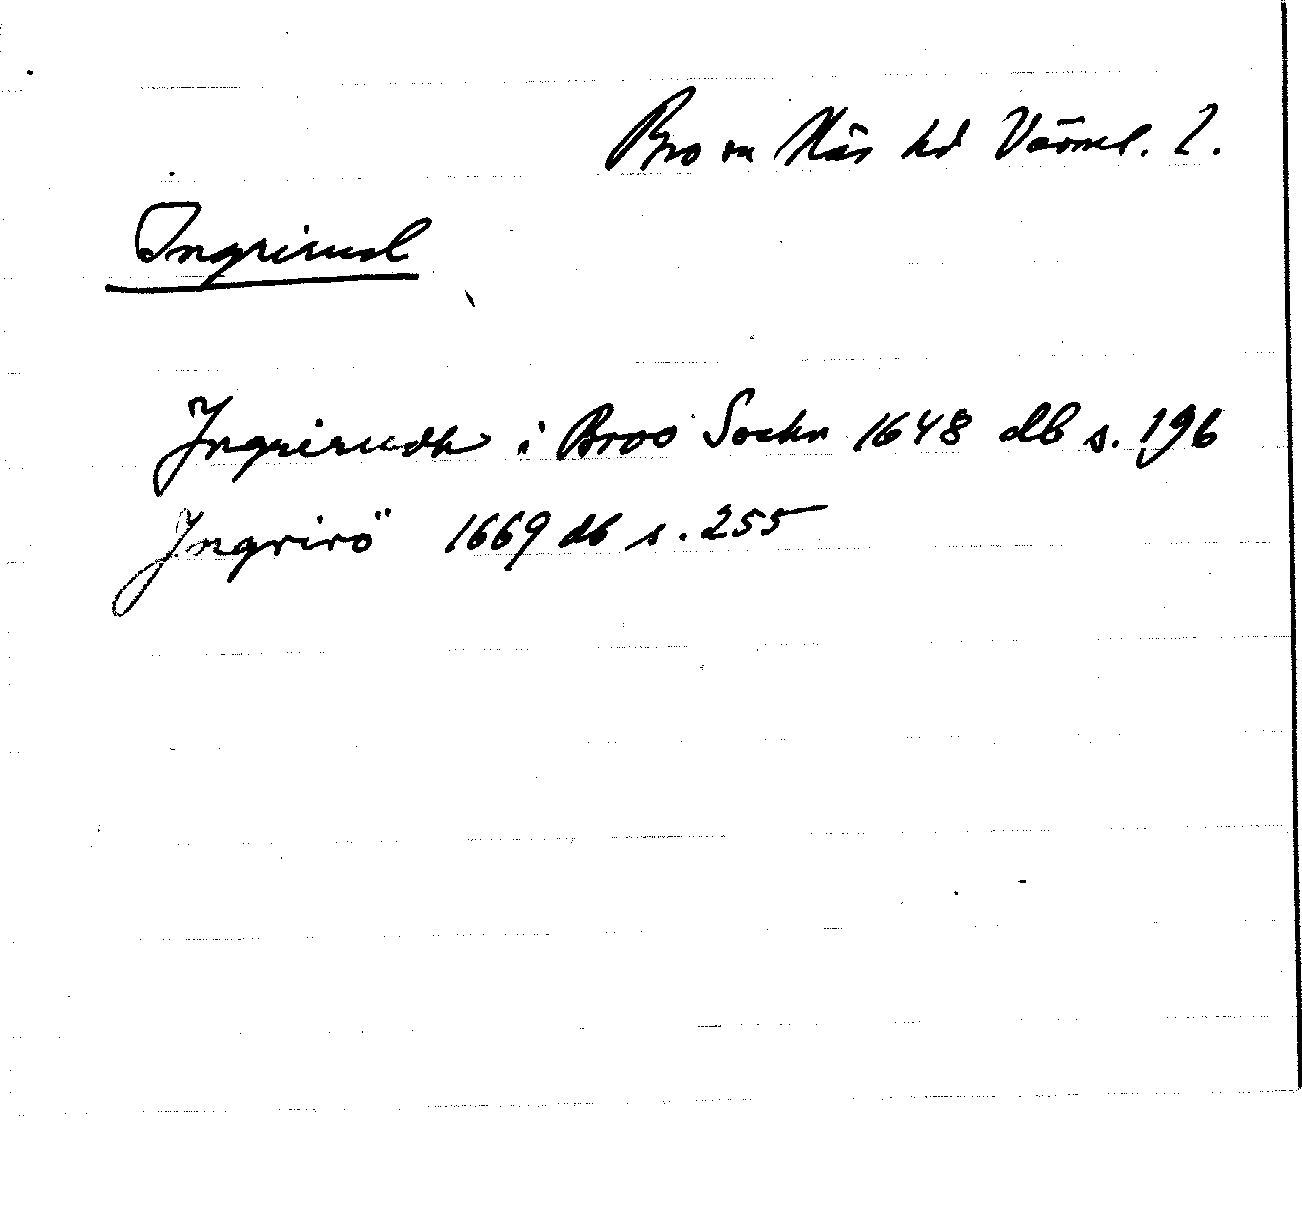 Bro sn Näs hd Värml. l.
Ingrirud
Ingrirudh i Broo Sockn 1648 db s. 196
Ingrirö 1669 db s. 255